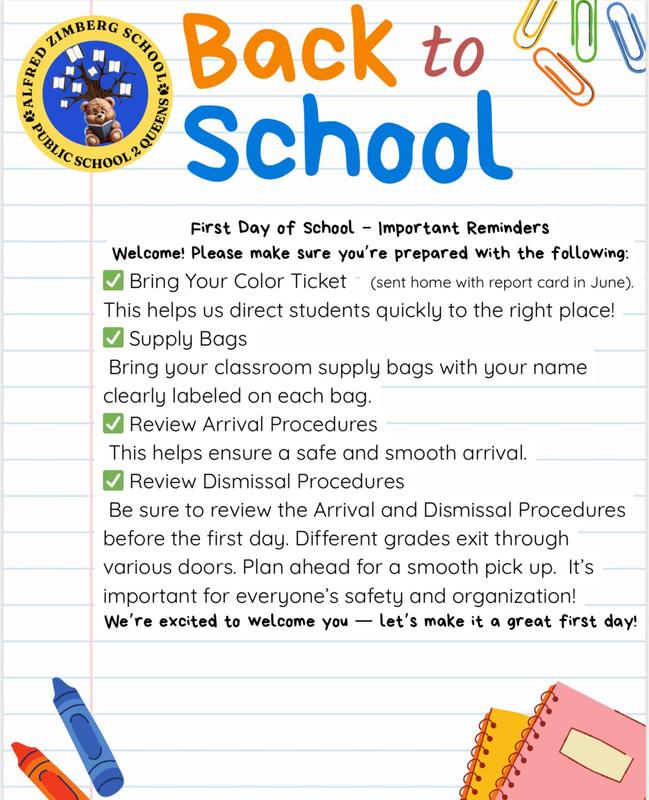 ALFRED ZIMBERG SCHOOL
PUBLIC SCHOOL 2 QUEENS
Back to
School
First Day of School - Important Reminders
Welcome! Please make sure you're prepared with the following:
✅ Bring Your Color Ticket (sent home with report card in June).
This helps us direct students quickly to the right place!
✅ Supply Bags
Bring your classroom supply bags with your name
clearly labeled on each bag.
✅ Review Arrival Procedures
This helps ensure a safe and smooth arrival.
✅ Review Dismissal Procedures
Be sure to review the Arrival and Dismissal Procedures
before the first day. Different grades exit through
various doors. Plan ahead for a smooth pick up. It's
important for everyone's safety and organization!
We're excited to welcome you — let's make it a great first day!